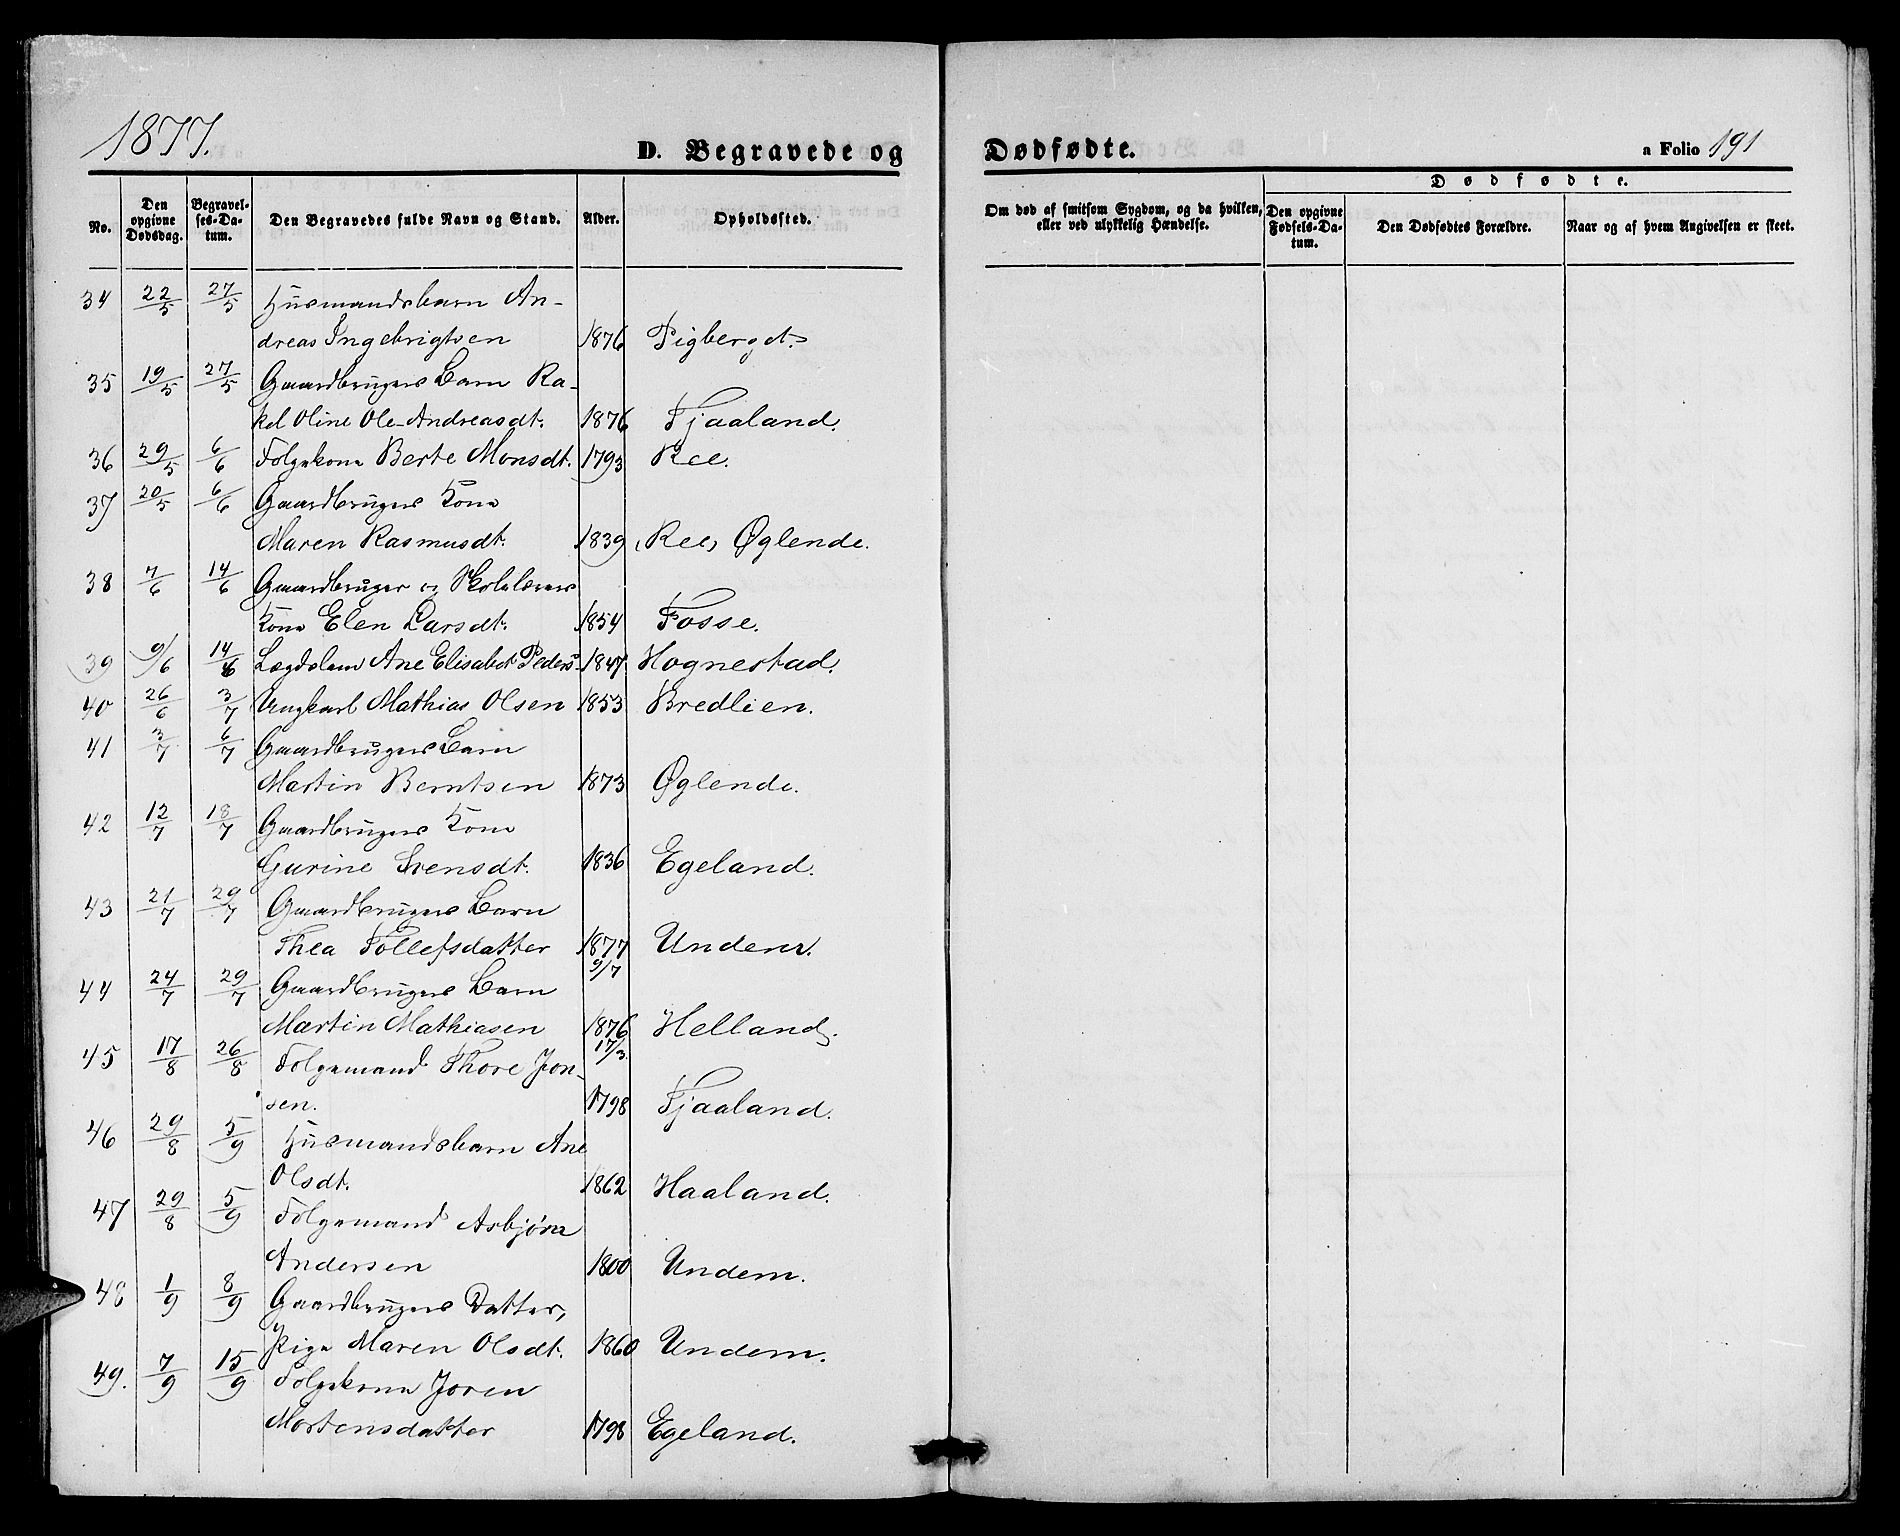 1877.
D. Begravede og
Dødfødte.
a Folio 191
No.
Den opgivne Dødsdag.
Begravelses-Datum.
Den Begravedes fulde Navn og Stand.
Alder.
Opholdssted.
Om død af smitsom Sygdom, og da hvilken, eller ved ulykkelig Hændelse.
Dødfødte.
Den opgivne Fødsels-Datum.
Den Dødfødtes Forældre.
Naar og af hvem Angivelsen er skeet.
34 22/5 27/5 Husmandsbarn An-
dreas Ingebrigtsen 1876 Pigberget.
35 19/5 27/5 Gaardbrugers Barn Ra-
kel Oline Ole-Andreasdt. 1876 Fjaaland.
36 29/5 6/6 Folgekone Berte Monsdt. 1793 Ree.
37 20/5 6/6 Gaardbrugers Kone
Maren Rasmusdt. 1839 Ree, Øglende.
38 7/6 14/6 Gaardbruger og Skolelærers
Kone Elen Larsdt. 1854 Fosse.
39 9/6 14/6 Lægdslem Ane Elisabet Peders- 1847 Hognestad.
40 26/6 3/7 Ungkarl Mathias Olsen 1853 Bredlien.
41 3/7 6/7 Gaardbrugers Barn
Martin Berntsen 1873 Øglende.
42 12/7 18/7 Gaardbrugers Kone
Gurine Svensdt. 1836 Egeland.
43 21/7 29/7 Gaardbrugers Barn
Thea Tollefsdatter 1877 Undem.
9/7
44 24/7 29/7 Gaardbrugers Barn
Martin Mathiasen 1876 Helland.
17/3.
45 17/8 26/8 Folgemand Thore Jon-
sen. 1798 Fjaaland.
46 29/8 5/9 Husmandsbarn Ane
Olsdt. 1862 Haaland.
47 29/8 5/9 Folgemand Asbjørn
Andersen 1800 Undem.
48 1/9 8/9 Gaardbrugers Datter,
Pige Maren Olsdt. 1860 Undem.
49. 7/9 15/9 Folgekone Joren
Mortensdatter 1798 Egeland.